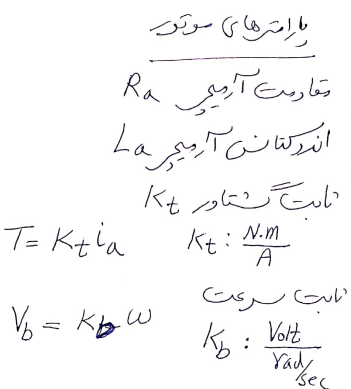 پارامترهای موتور
مقاومت آرمیچر Ra
اندوکتانس آرمیچر La
ثابت گشتاور Kt
T = Kt ia    Kt : N.m/A
ثابت سرعت
Vb = Kb ω    Kb : Volt/rad/sec